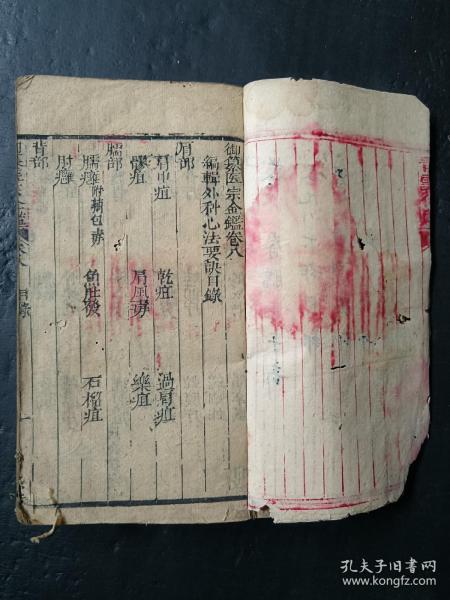 御纂医宗金鑑卷八
編輯外科心法要訣目錄
肩部
肩中疽 乾疽 過肩疽
髎疽 肩風毒 樂疽
臑部
臑癰附藕包毒 魚肚發 石榴疽
肘癰
背部
目錄
孔夫子旧书网
www.kongfz.com